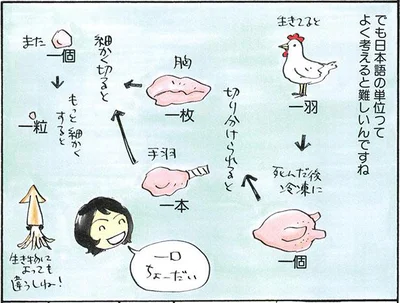 でも日本語の単位って
よく考えると難しいんですね
生きてると
一羽
死んだ後
冷凍に
一個
切り分けられると
胸
一枚
手羽
一本
細かく切ると
また
一個
もっと細かく
すると
一粒
一口
ちょーだい
生き物に
よっても
違うしね!